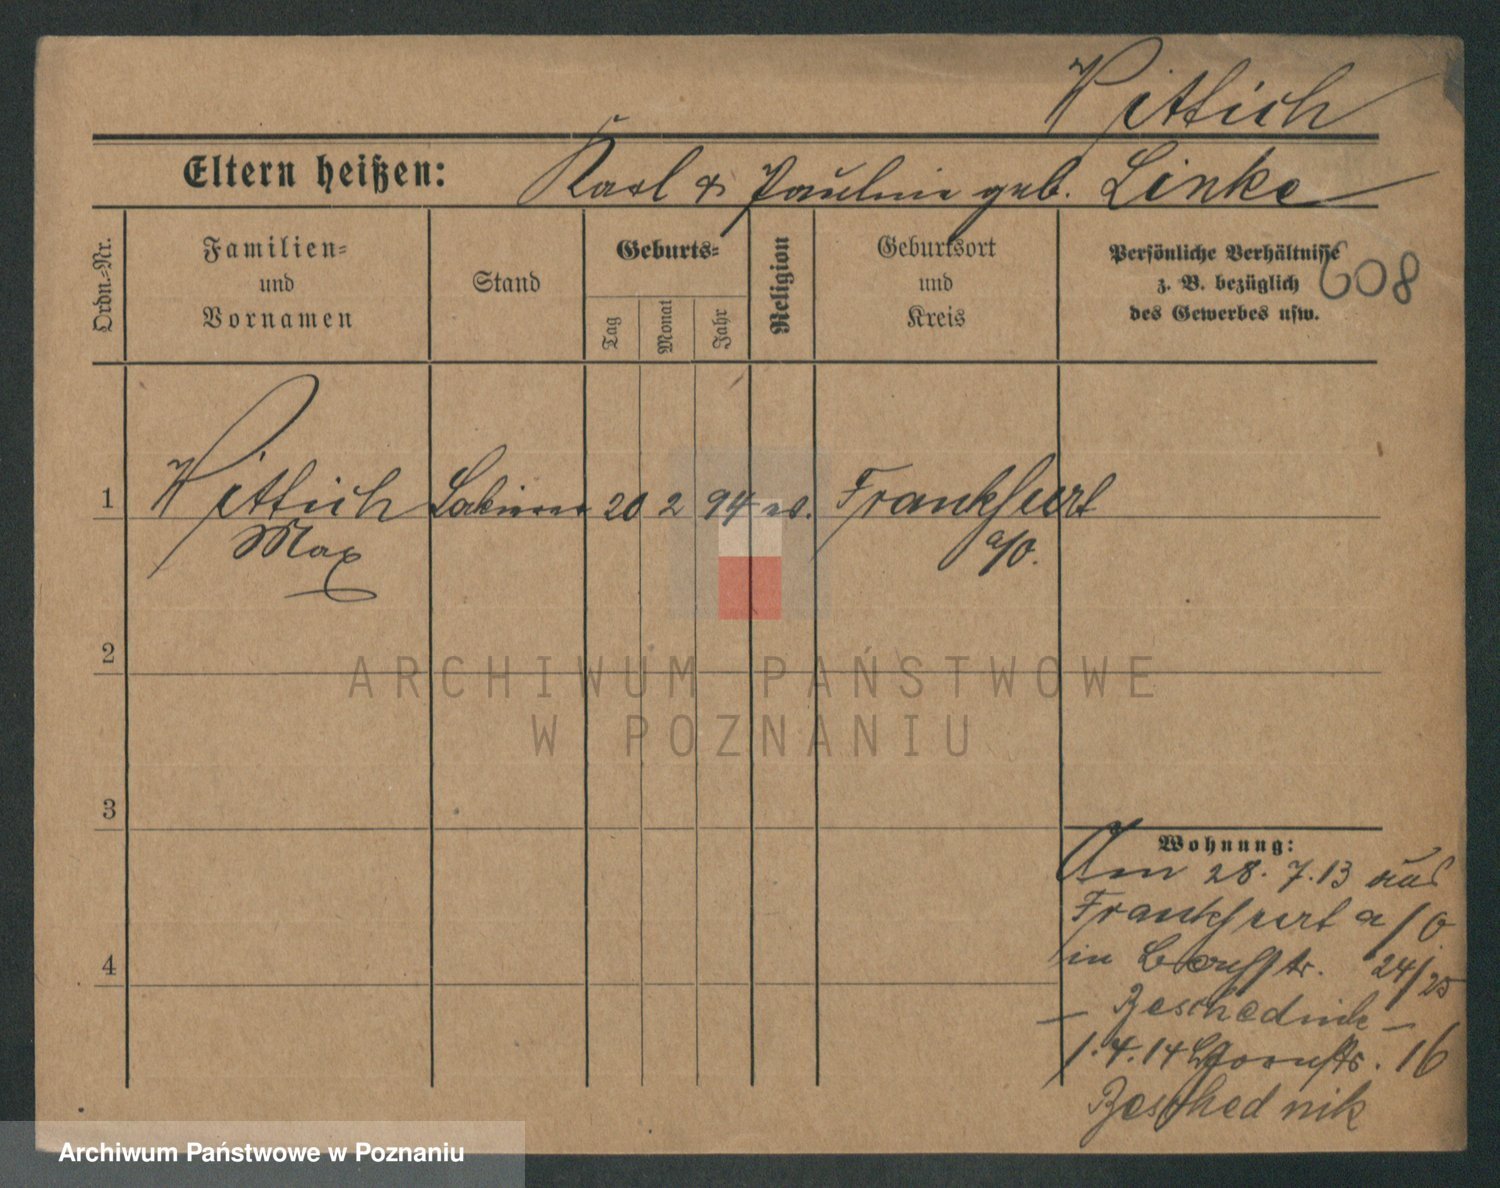 Wittich
Eltern heißen: Karl & Pauline geb. Linke
Ordn.-Nr.
Familien-
und
Vornamen
Stand
Geburts-
Tag
Monat
Jahr
Religion
Geburtsort
und
Kreis
Persönliche Verhältnisse
z. B. bezüglich
des Gewerbes usw.
608
1 Wittich Lakierer 20 2 94 ev. Frankfurt
Max a/O.
2
ARCHIWUM PAŃSTWOWE
W POZNANIU
3
Wohnung:
Am 28.7.13 aus
Frankfurt a/O
in 24/25
4
1.4.14 16
Archiwum Państwowe w Poznaniu